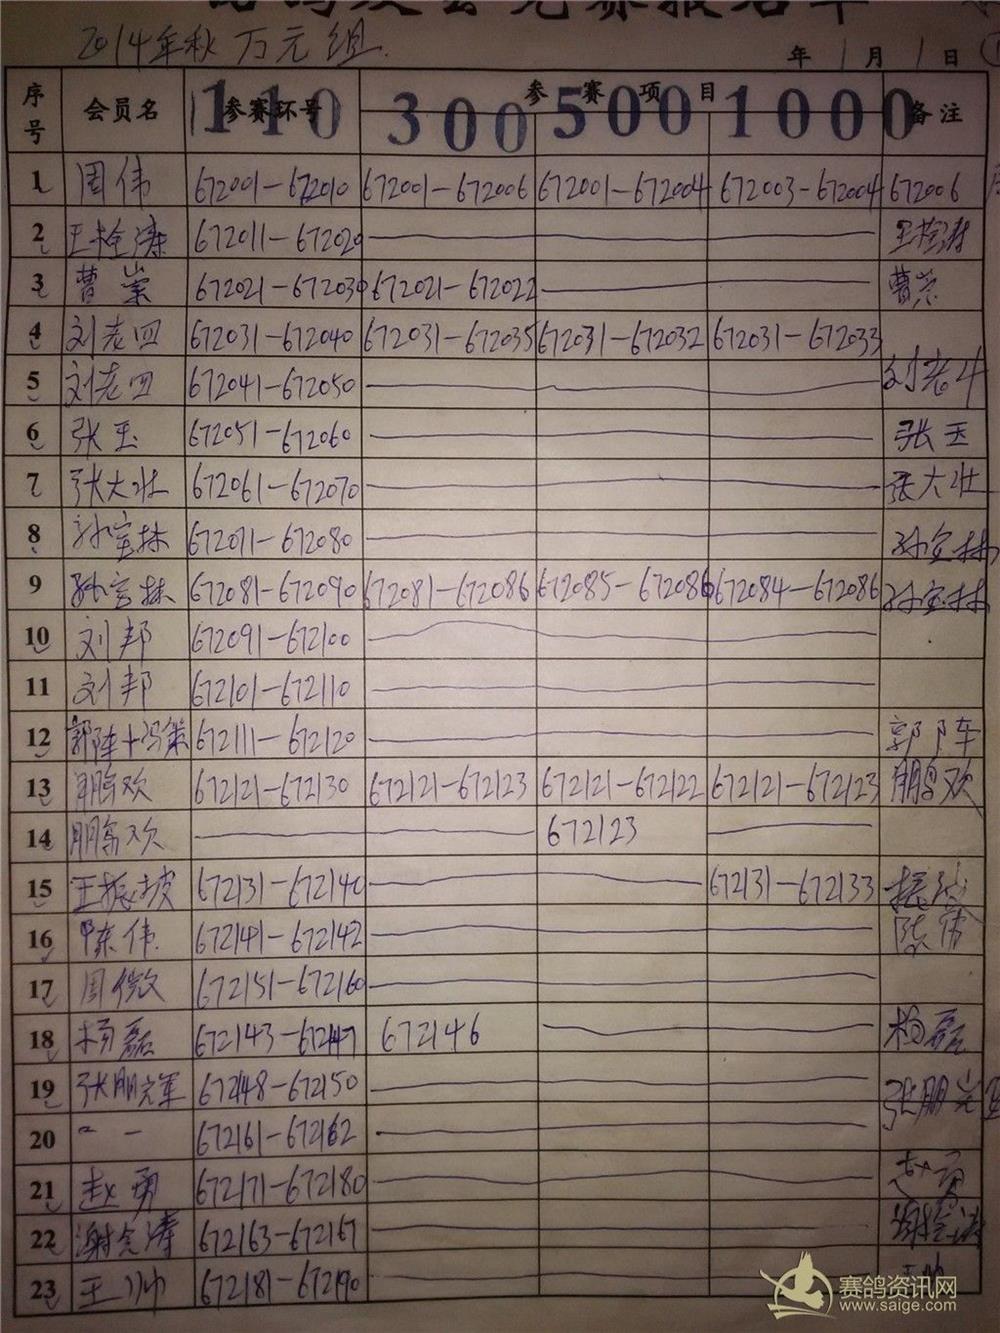 2014年秋 万元组
年 1 月 1 日
序号 会员名 参赛环号 参赛项目 备注
110 300 500 1000
1 周伟 672001-672010 672001-672006 672001-672004 672003-672004 672006
2 王栓涛 672011-672020 王栓涛
3 曹崇 672021-672030 672021-672022 曹崇
4 刘老四 672031-672040 672031-672035 672031-672032 672031-672033
5 刘老四 672041-672050 刘老
6 张玉 672051-672060 张玉
7 张大壮 672061-672070 张大壮
8 孙宝林 672071-672080 孙宝林
9 孙宝林 672081-672090 672081-672086 672085-672086 672084-672086 孙宝林
10 刘邦 672091-672100
11 刘邦 672101-672110
12 郭阵+冯 672111-672120 郭阵
13 鹏欢 672121-672130 672121-672123 672121-672122 672121-672123 鹏欢
14 鹏欢 672123
15 王振坡 672131-672140 672131-672133 振
16 陈伟 672141-672142 陈伟
17 周微 672151-672160
18 杨磊 672143-672147 672146 杨磊
19 张朋完军 672148-672150 张朋完
20 672161-672162
21 赵勇 672171-672180 赵勇
22 谢全涛 672163-672167 谢全涛
23 王帅 672181-672190 王帅
赛鸽资讯网
www.saige.com